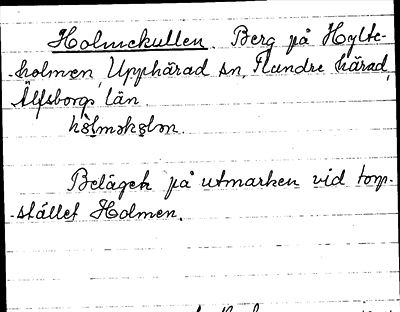 Holmekullen. Berg på Hylte-
-holmen Upphärad sn, Flundre härad,
Älfsborgs län.
hòlməkɵlən.
Belägen på utmarken vid torp-
-stället Holmen.